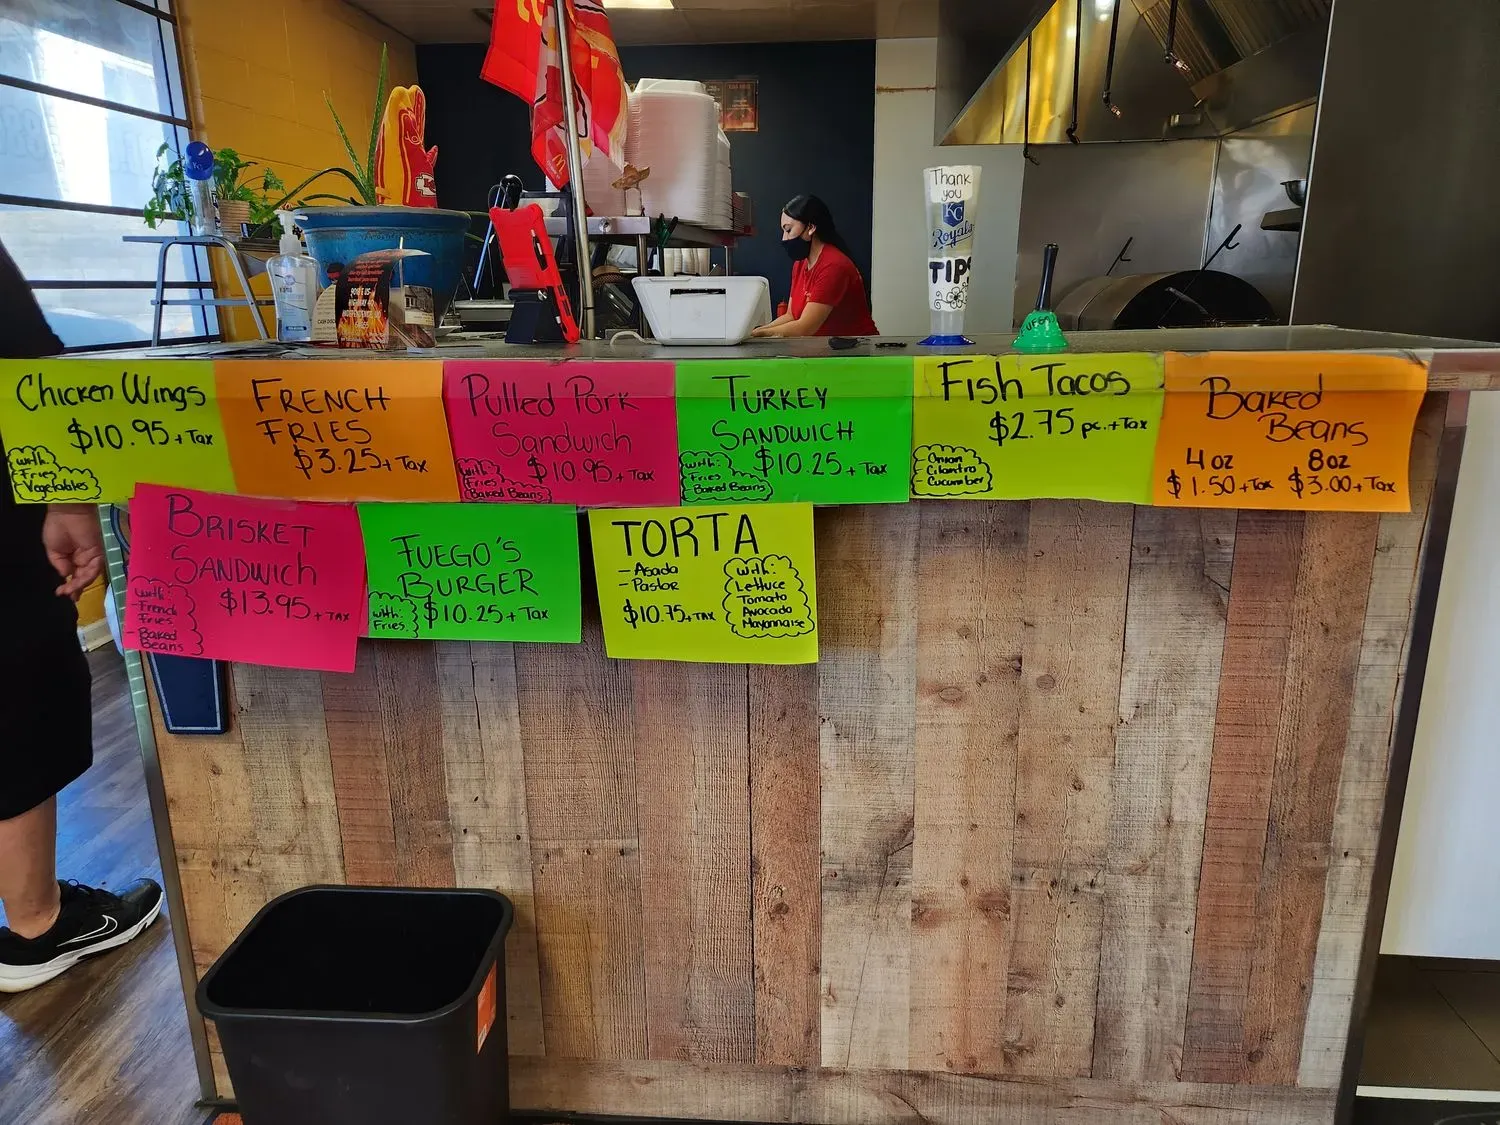 Thank
you
KC
Royals
TIPS
FUEGO
Chicken Wings
$10.95 + Tax
with:
Fries
Vegetables
FRENCH
FRIES
$3.25 + Tax
Pulled Pork
Sandwich
$10.95 + Tax
with:
Fries
Baked Beans
TURKEY
SANDWICH
$10.25 + Tax
with:
Fries
Baked Beans
Fish Tacos
$2.75 pc. + Tax
- Onion
- Cilantro
- Cucumber
Baked
Beans
4 oz 8 oz
$1.50 + Tax $3.00 + Tax
BRISKET
SANDWICH
$13.95 + TAX
with:
- French
Fries
- Baked
Beans
FUEGO'S
BURGER
$10.25 + Tax
with:
Fries.
TORTA
- Asada
- Pastor
$10.75 + TAX
with:
Lettuce
Tomato
Avocado
Mayonnaise